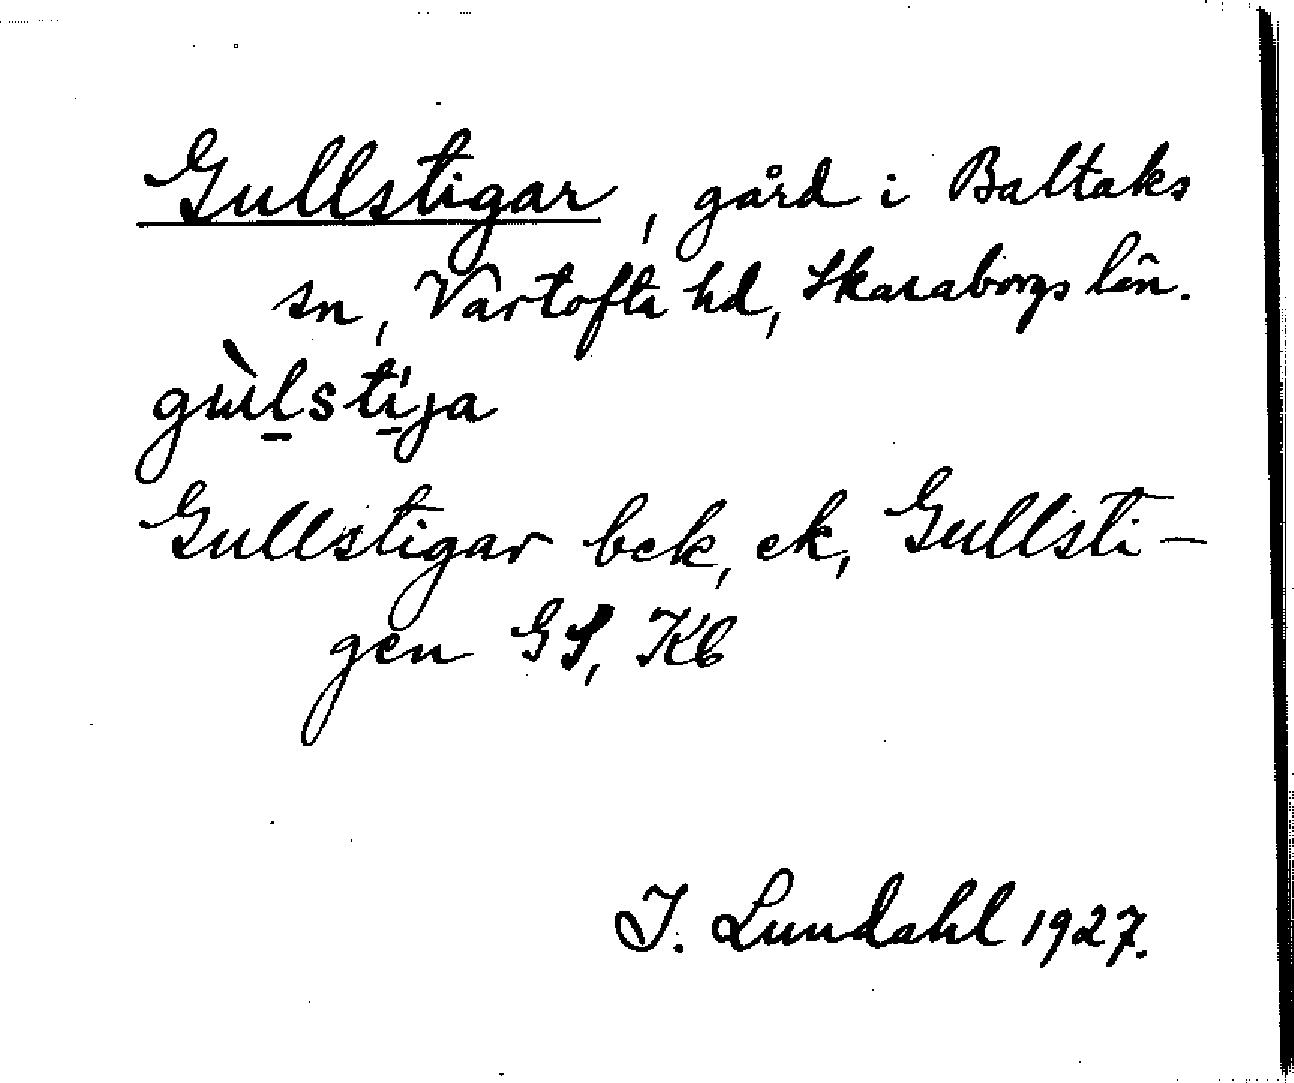 Gullstigar, gård i Baltaks
sn, Vartofta hd, Skaraborgs län.
gɯ̀l̠sti̠ja
Gullstigar bek, ek, Gullsti-
gen GS, Kb
I. Lundahl 1927.